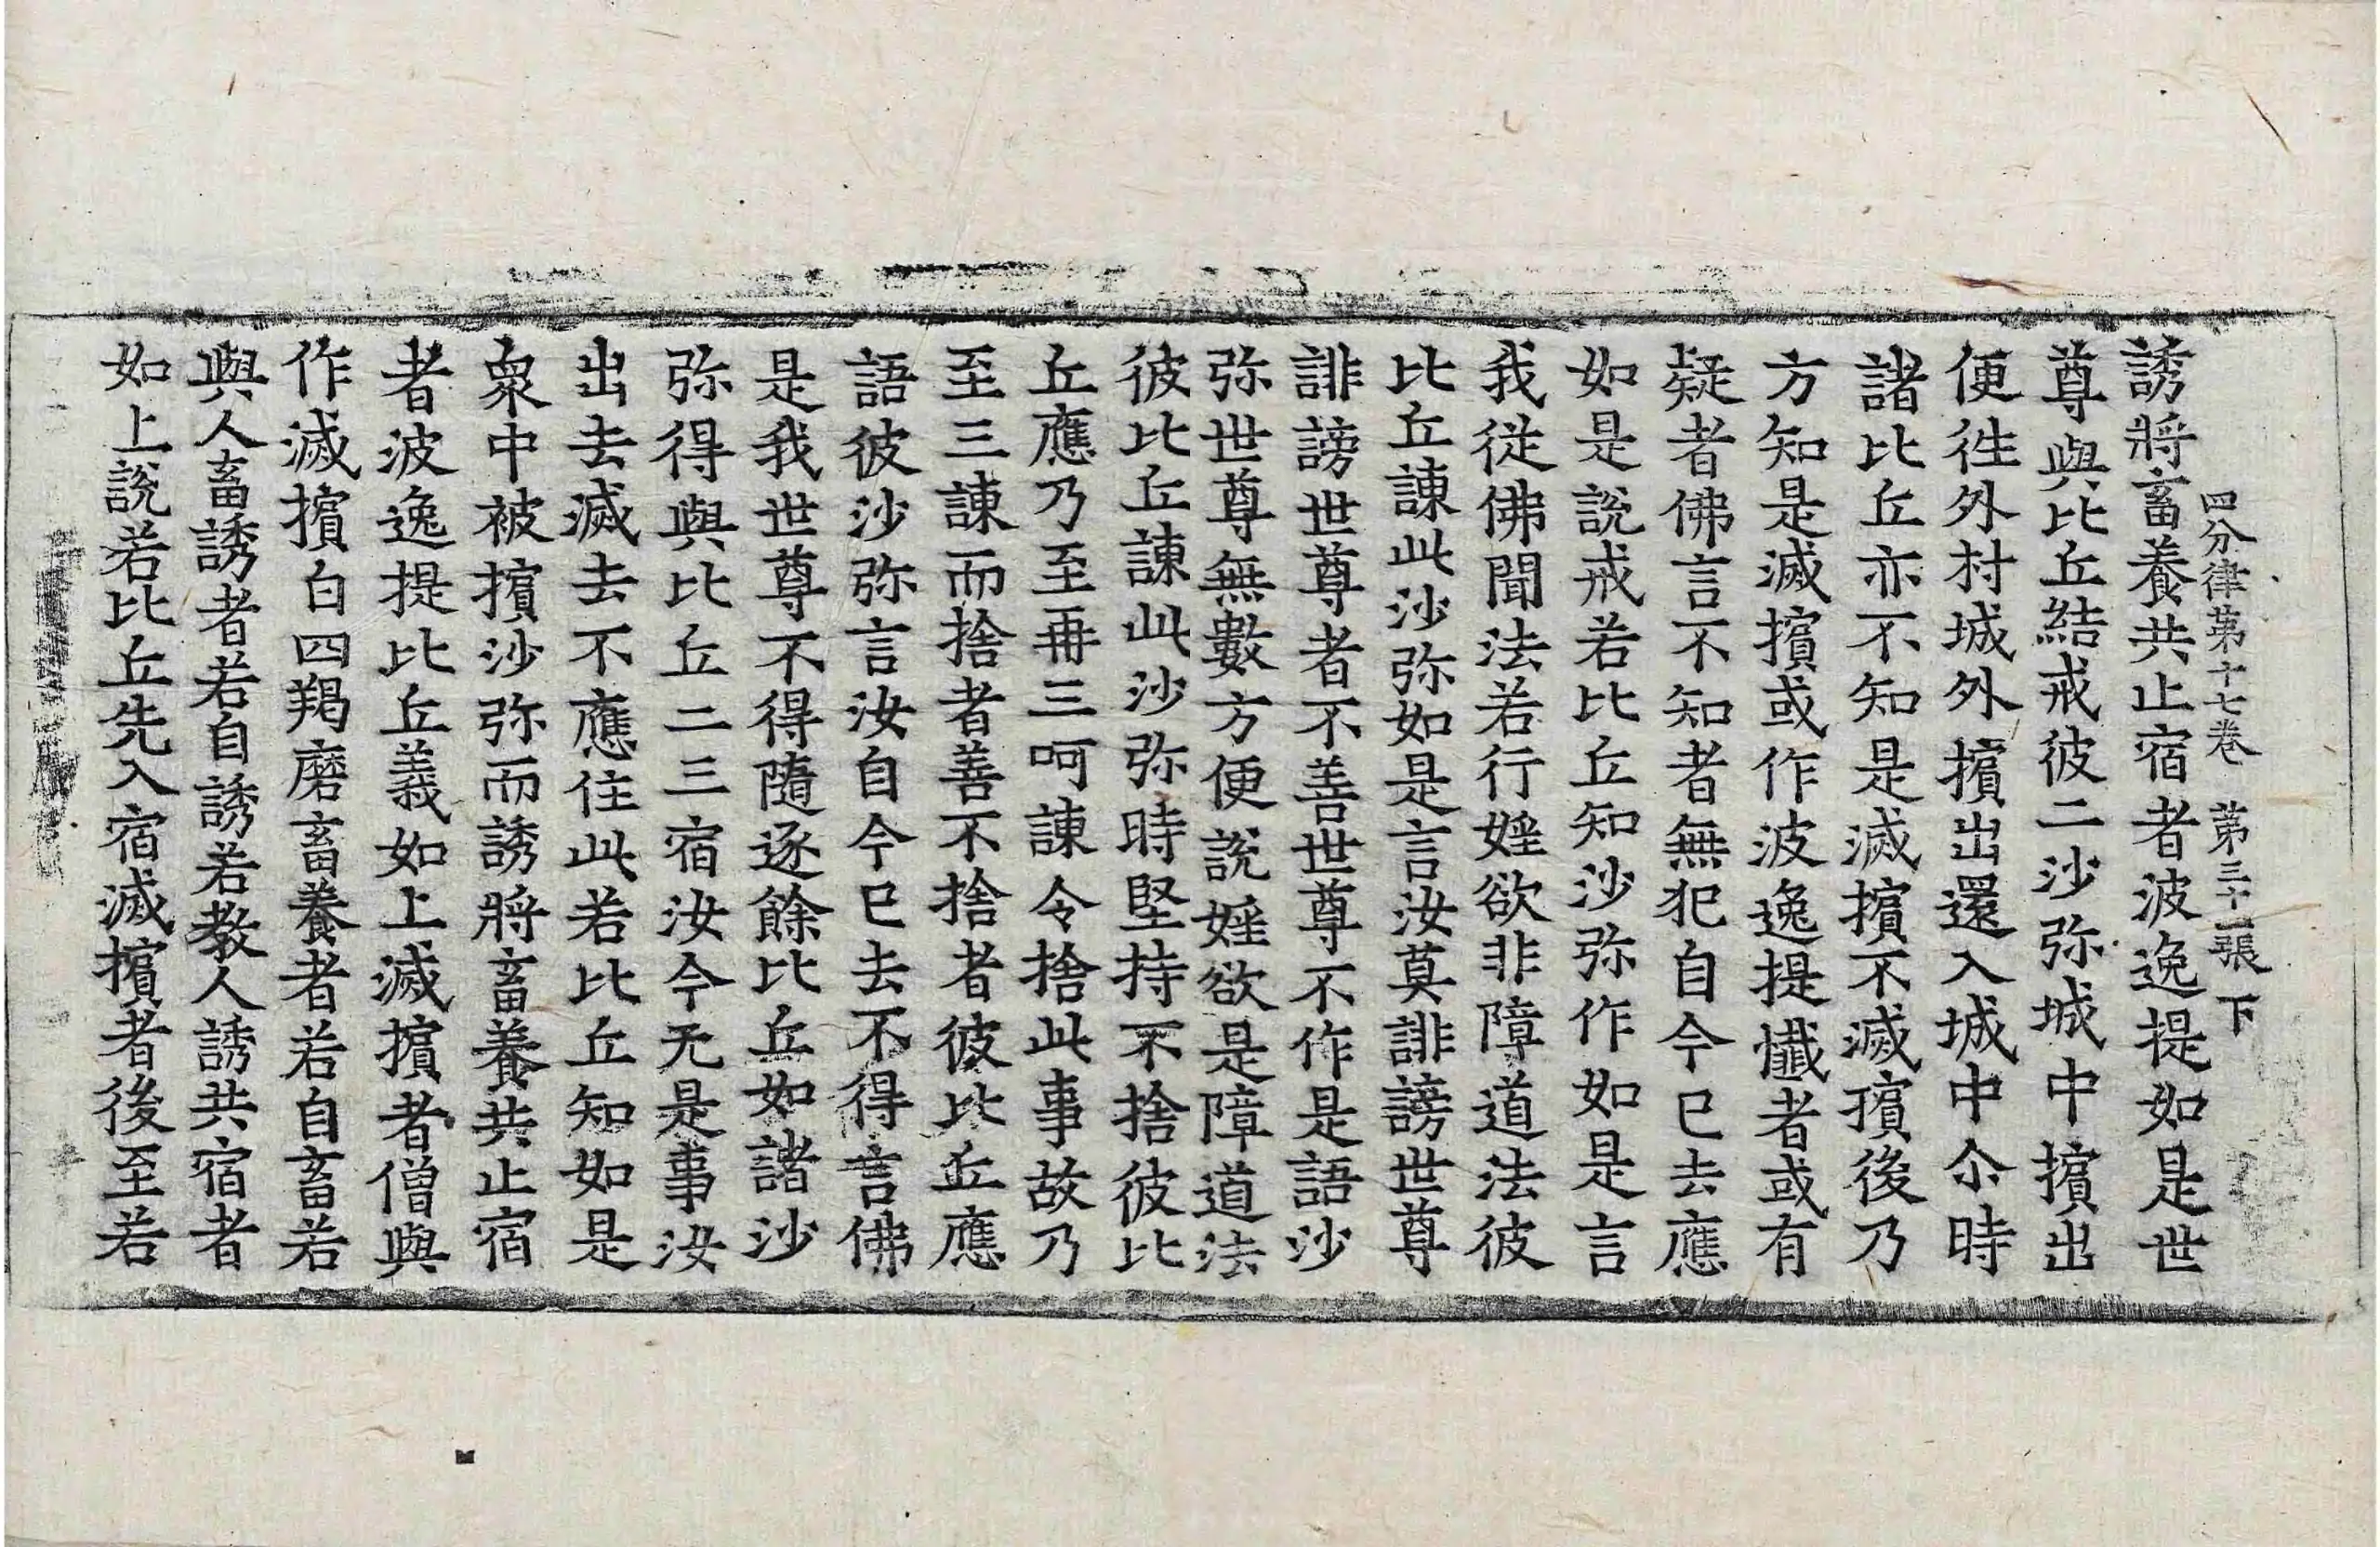 四分律苐十七卷 苐三十一張 下
誘將畜養共止宿者波逸提如是世
尊與比丘結戒彼二沙弥城中擯出
便徃外村城外擯出還入城中尒時
諸比丘亦不知是滅擯不滅擯後乃
方知是滅擯或作波逸提懺者或有
疑者佛言不知者無犯自今已去應
如是說戒若比丘知沙弥作如是言
我從佛聞法若行婬欲非障道法彼
比丘諫此沙弥如是言汝莫誹謗世尊
誹謗世尊者不善世尊不作是語沙
弥世尊無數方便說婬欲是障道法
彼比丘諫此沙弥時堅持不捨彼比
丘應乃至再三呵諫令捨此事故乃
至三諫而捨者善不捨者彼比丘應
語彼沙弥言汝自今已去不得言佛
是我世尊不得隨逐餘比丘如諸沙
弥得與比丘二三宿汝今无是事汝
出去滅去不應住此若比丘知如是
衆中被擯沙弥而誘將畜養共止宿
者波逸提比丘義如上滅擯者僧與
作滅擯白四羯磨畜養者若自畜若
與人畜誘者若自誘若教人誘共宿者
如上說若比丘先入宿滅擯者後至若